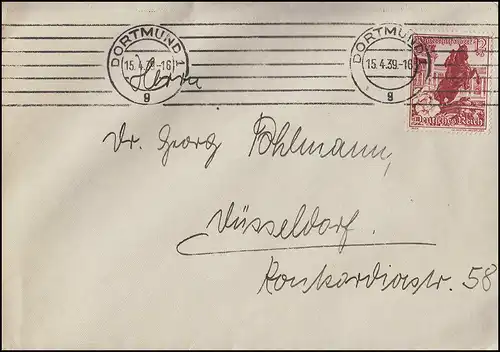 DORTMUND 1
15.4.39.-16
g
DORTMUND 1
15.4.39.-16
g
12
Deutsches Reich
Herrn
Dr. Georg Pohlmann,
Düsseldorf.
Konkordiastr. 58